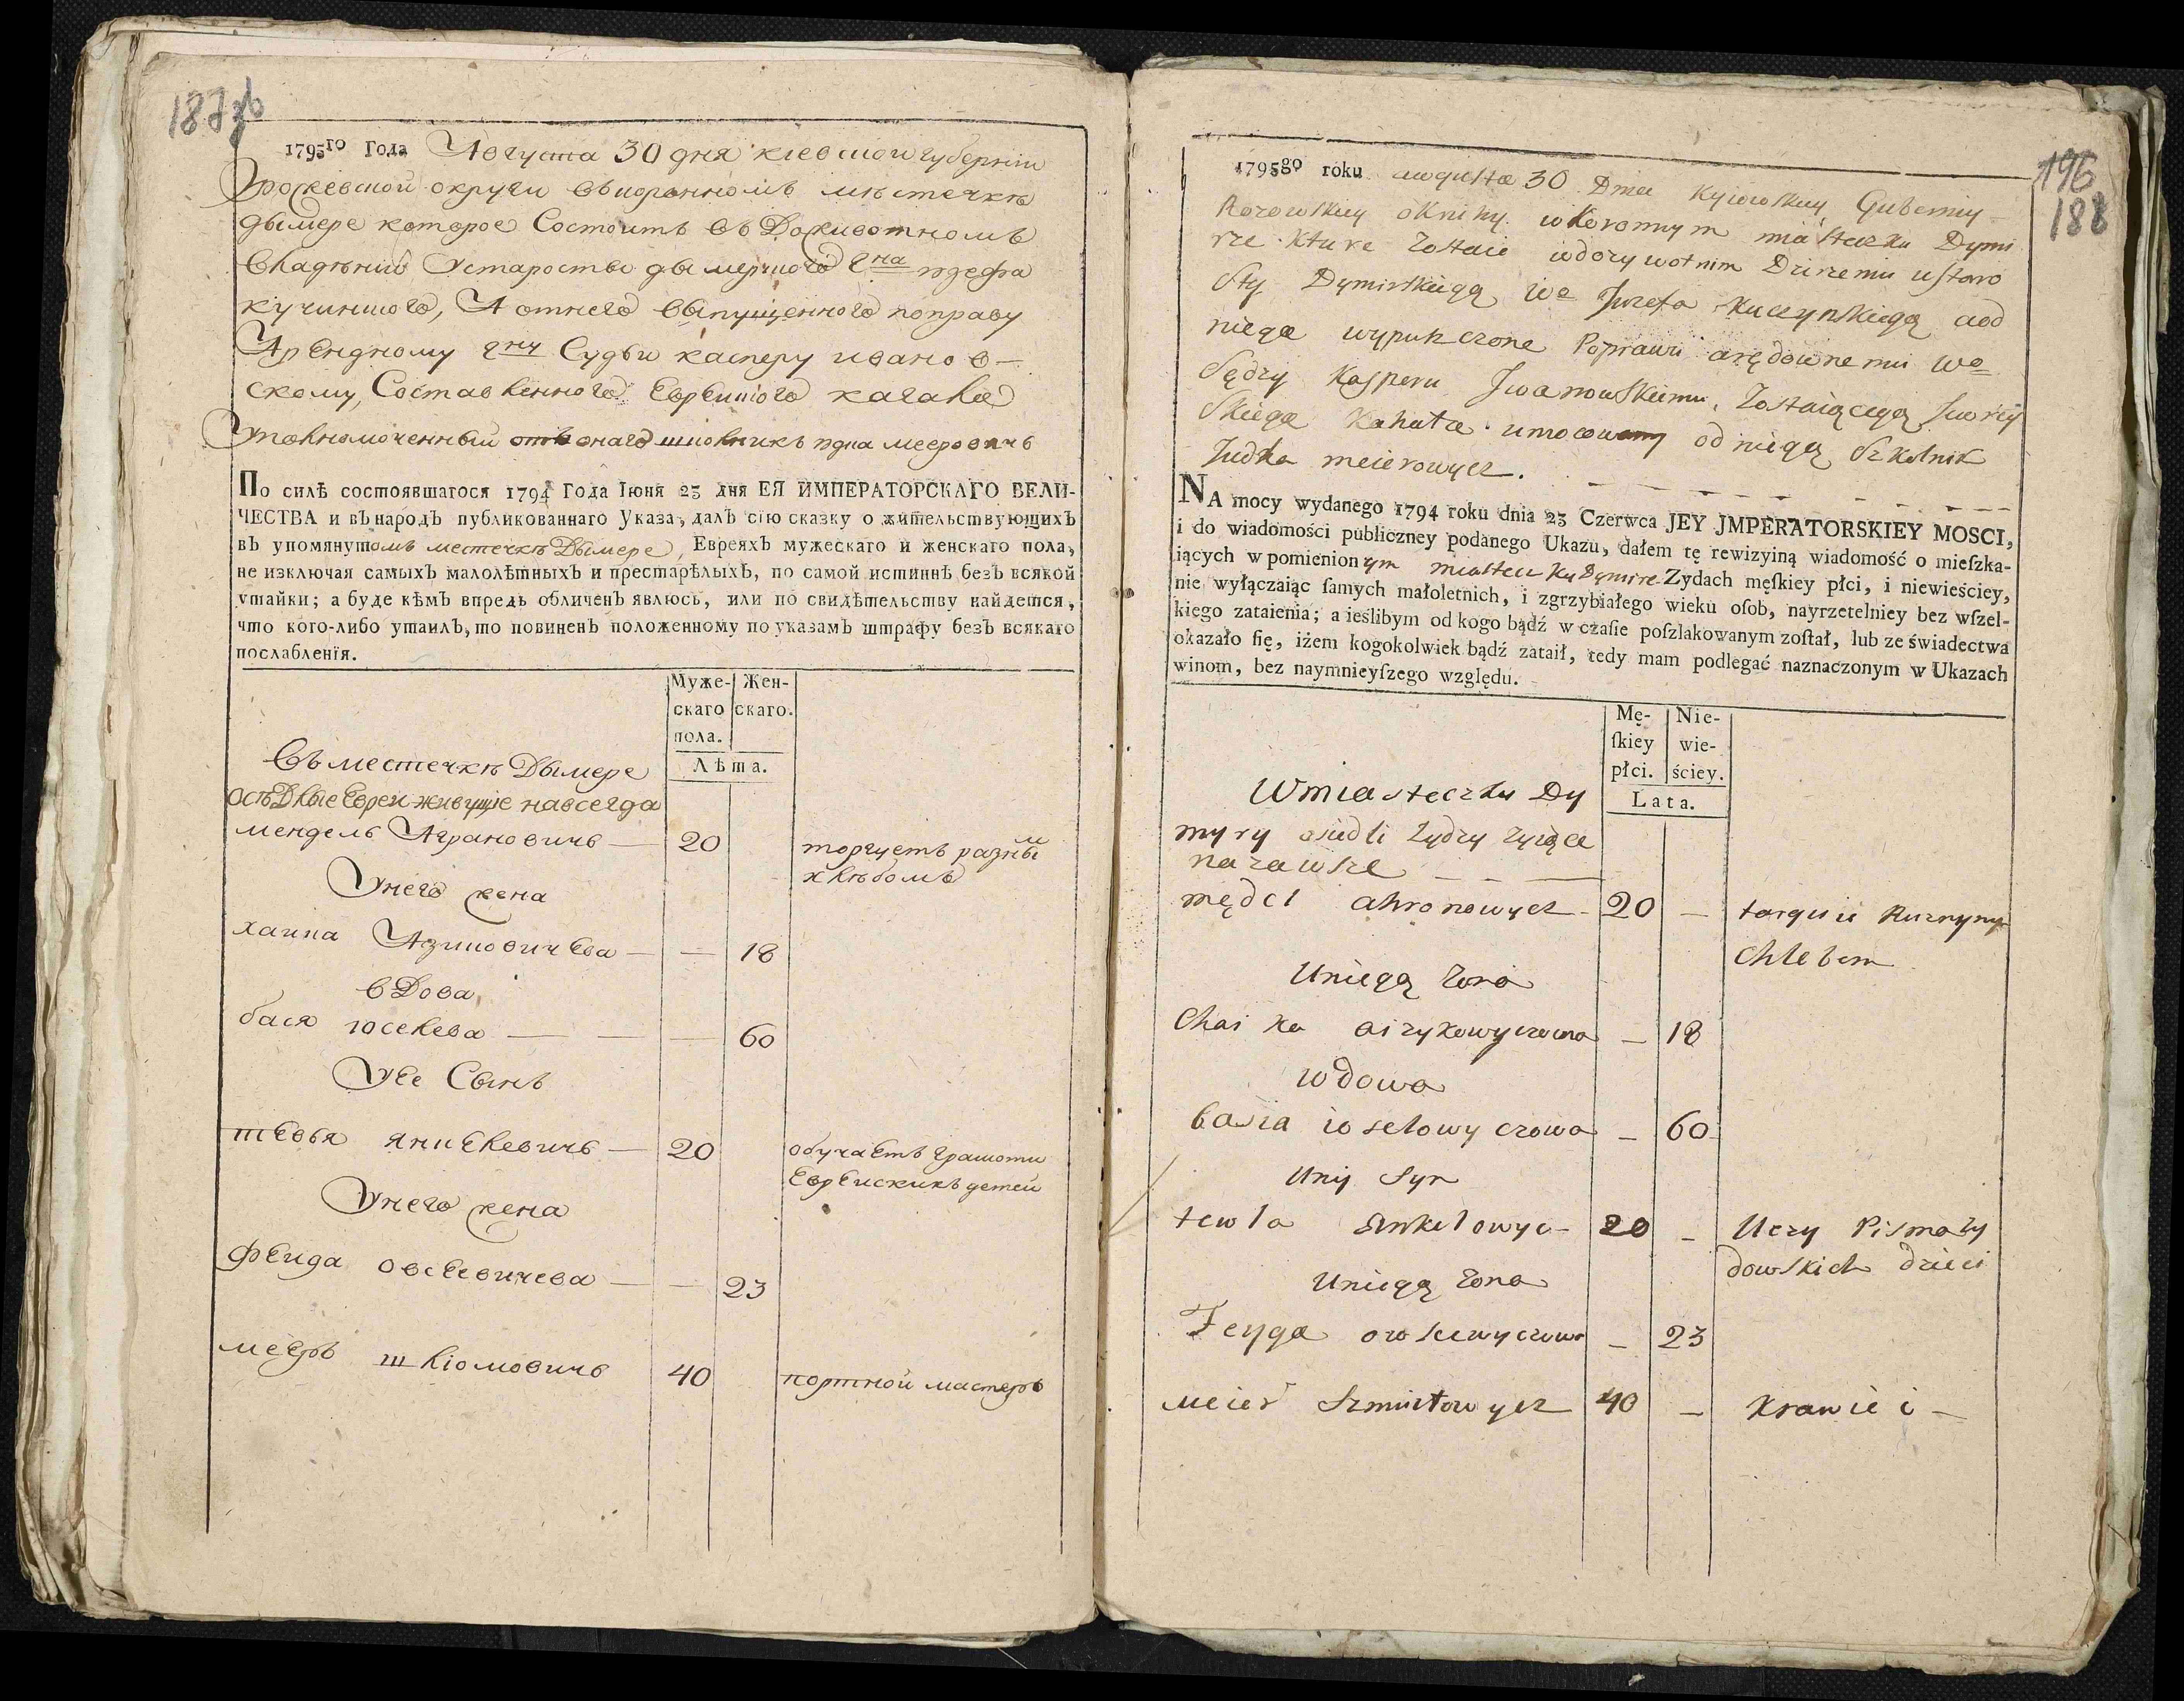 187 зв
1795го Года Августа 30 дня киевской губернии
округи въ коронномъ местечкѣ
дымере которое Состоитъ въ Доживотномъ
владѣнии Устаросты дымерского Гна юзефа
кучинского, А отнего выпущенного поправу
Арендному Гну Судьи касперу ивановъ-
скому, Составленного Еврейского кагала
Уполномоченный отъ онаго школникъ юдка мееровичъ
По силѣ состоявшагося 1794 Года Iюня 23 дня ЕЯ ИМПЕРАТОРСКАГО ВЕЛИ-
ЧЕСТВА и въ народъ публикованнаго Указа, далъ сїю сказку о жительствующихъ
въ упомянутомъ местечкѣ Дымере, Евреяхъ мужескаго и женскаго пола,
не изключая самыхъ малолѣтныхъ и престарѣлыхъ, по самой истиннѣ безъ всякой
утайки; а буде кѣмъ впредь обличенъ явлюсь, или по свидѣтельству найдется,
что кого-либо утаилъ, то повиненъ положенному по указамъ штрафу безъ всякаго
послабленїя.
Муже- Жен-
скаго скаго.
пола.
Лѣта.
Въ местечкѣ Дымере
осѣдлые Евреи живущие навсегда
мендель Аграновичъ — 20 торгуетъ разнымъ
хлѣбомъ
Унего жена
хаика Азиковичева — — 18
вдова
бася юселева — — — 60
Уее Сынъ
тевья янкелевичъ — 20 обучаетъ грамоти
Еврейскихъ детей
Унего жена
фейга овсеевичева — — 23
мееръ шлиомовичъ 40 портной мастеръ
196
188
1795go roku augusta 30 Dnia Kyiowskiy Guberniy
okruhy wkoronnym miasteczku Dymi
rze kture zostaie wdozywotnim Dzirzeniu ustaro
sty Dymirskiegą We Juzefa Kuczynskiegą aod
niega wypuszczone Poprawu arędownemu We
Sędzy Kasperu Jwanowskiemu, zostaiącegą Jwrey
skiega Kahała umocowany od niegą Szkolnik
Judka meierowycz.
NA mocy wydanego 1794 roku dnia 23 Czerwca JEY JMPERATORSKIEY MOSCI,
i do wiadomości publiczney podanego Ukazu, dałem tę rewizyiną wiadomość o mieſzka-
iących w pomienionym miasteczku Dymire Zydach męſkiey płci, i niewieściey,
nie wyłączaiąc ſamych małoletnich, i zgrzybiałego wieku oſob, nayrzetelniey bez wſzel-
kiego zataienia; a ieślibym od kogo bądź w czaſie poſzlakowanym zoſtał, lub ze świadectwa
okazało ſię, iżem kogokolwiek bądź zataił, tedy mam podlegać naznaczonym w Ukazach
winom, bez naymnieyſzego względu.
Mę- Nie-
ſkiey wie-
płci. ściey.
Lata.
Wmiasteczku Dy
myry osiedli żydzy żyiące
nazawsze
mędel ahronowycz - 20 — targuie Ruznym
Chlebem
Uniegą żona
Chaika aizykowyczowa — 18
wdowa
basia ioselowyczowa — 60
Uniy Syn
tewla Ankelowyc - 20 — Uczy Pisma ży
dowskich dzieci
Uniegą żona
Feyga owseewyczowa — 23
Meier Szmulowycz 40 — Krawiec —